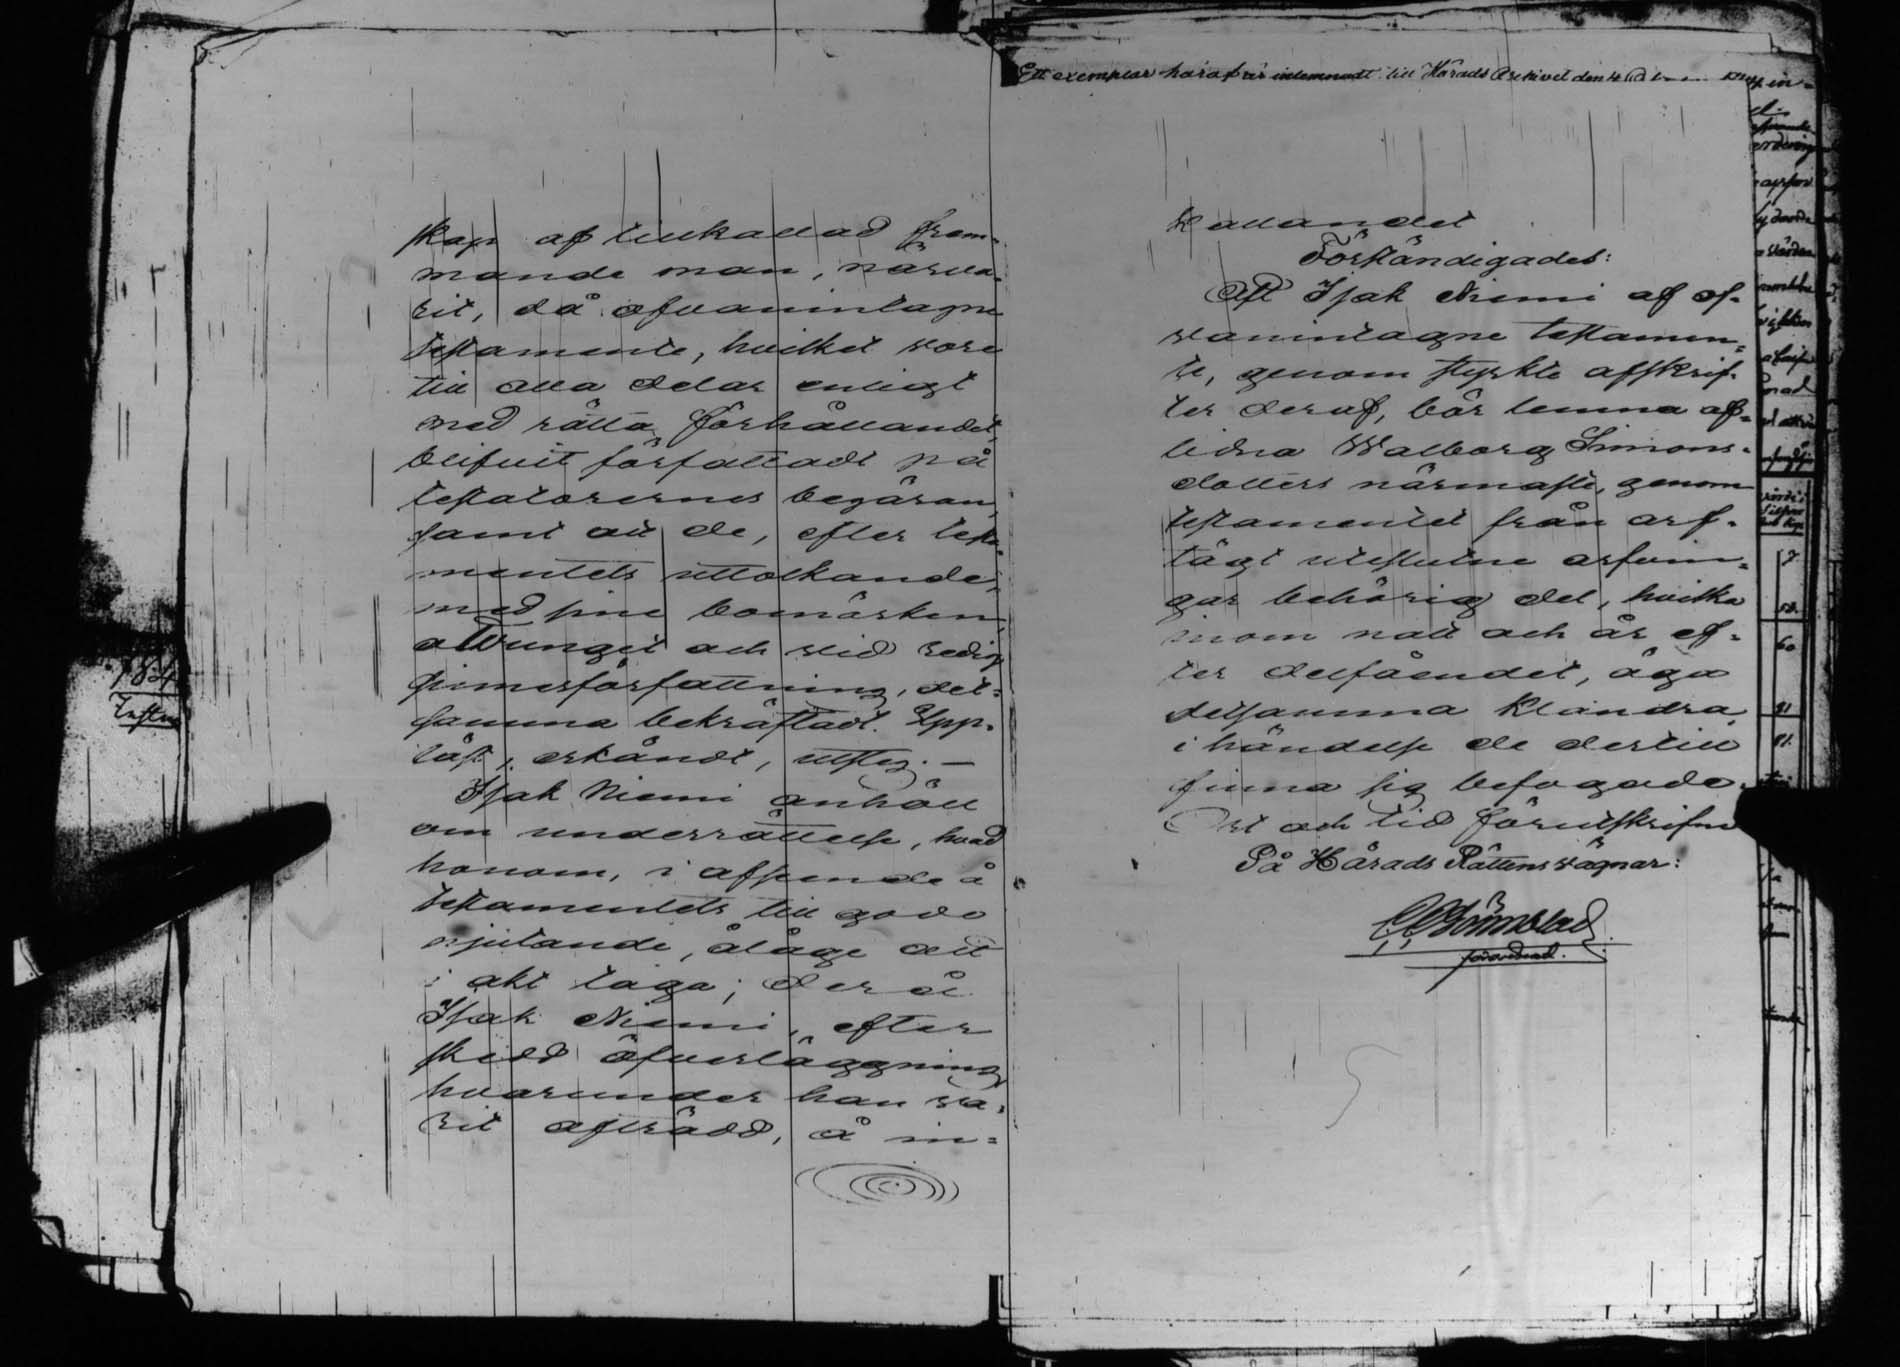 skap af tillkallad fram-
mande man, närva-
rit, då ofvanintagne
testamente, hvilket vore
till alla delar enligt
med rätta förhållandet,
blifvit författadt på
testatorernes begäran,
samt att de, efter testa-
mentets uttolkande,
med sine bomärken,
otvunget och vid redig
sinnesförfattning, det-
samma bekräftadt. Upp-
läst, erkändt, utsteg. —
Isak Niemi anhöll
om underrättelse, hvad
honom, i afseende å
testamentets till godo
njutande, ålåge att
i akt taga; derå
Isak Niemi, efter
skedd öfverläggning
hvarunder han va-
rit afträdd, å in-
1854
Ett exemplar häraf är inlemnadt till Härads Arkivet den
kallandet
Förständigades:
Att Isak Niemi af of-
vanintagne testamen-
te, genom styrkte afskrif-
ter deraf, bör lemna af-
lidna Walborg Simons-
dotters närmaste, genom
testamentet från arf-
tägt uteslutne arfvin-
gar behörig del, hvilka
inom natt och år ef-
ter delfåendet, äga
detsamma klandra,
i händelse de dertill
finna sig befogade.
Ort och tid förutskrifne
På Härads Rättens vägnar: